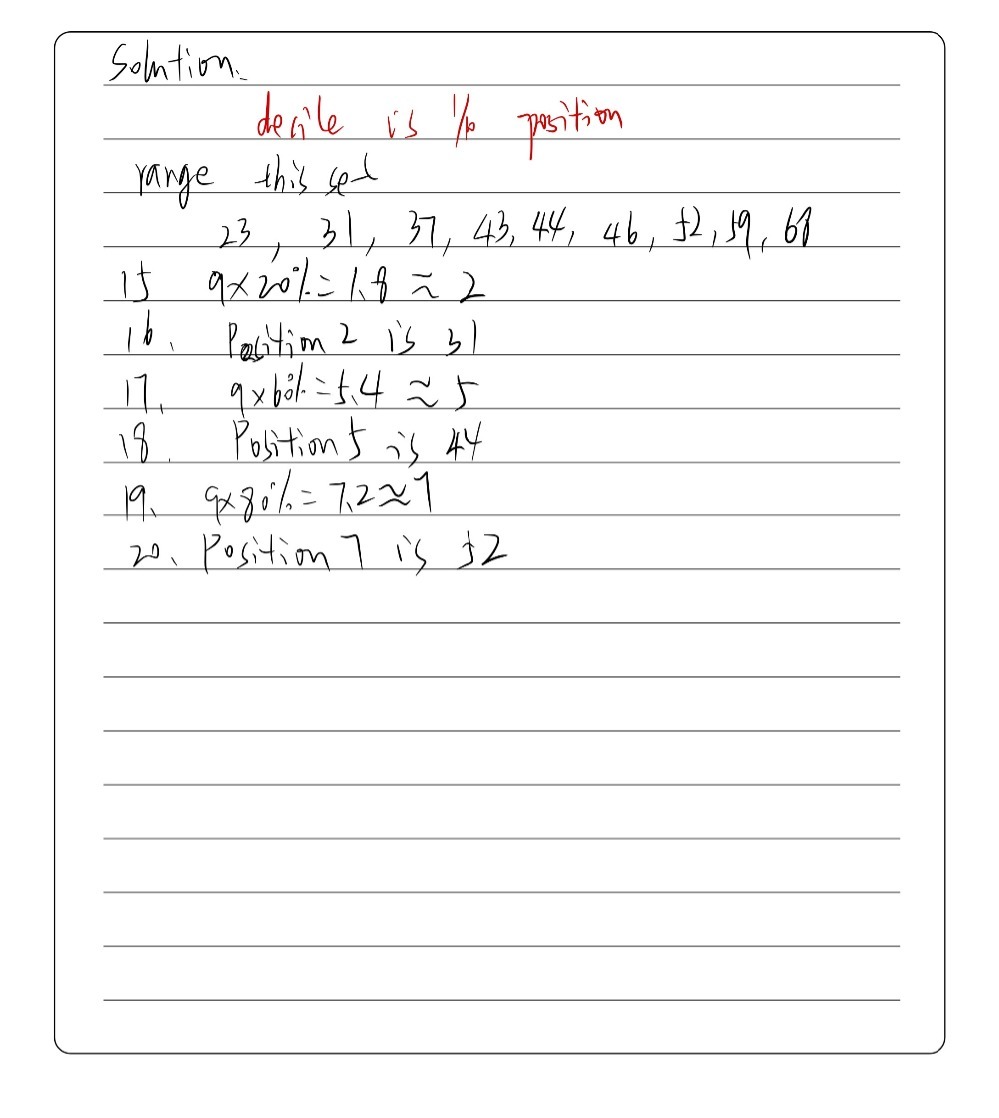 Solution.
decile is 1/10 position
range this set
23, 31, 37, 43, 44, 46, 52, 59, 68
15 9×20%=1.8≈2
16. Position 2 is 31
17. 9×60%=5.4≈5
18. Position 5 is 44
19. 9×80%=7.2≈7
20. Position 7 is 52